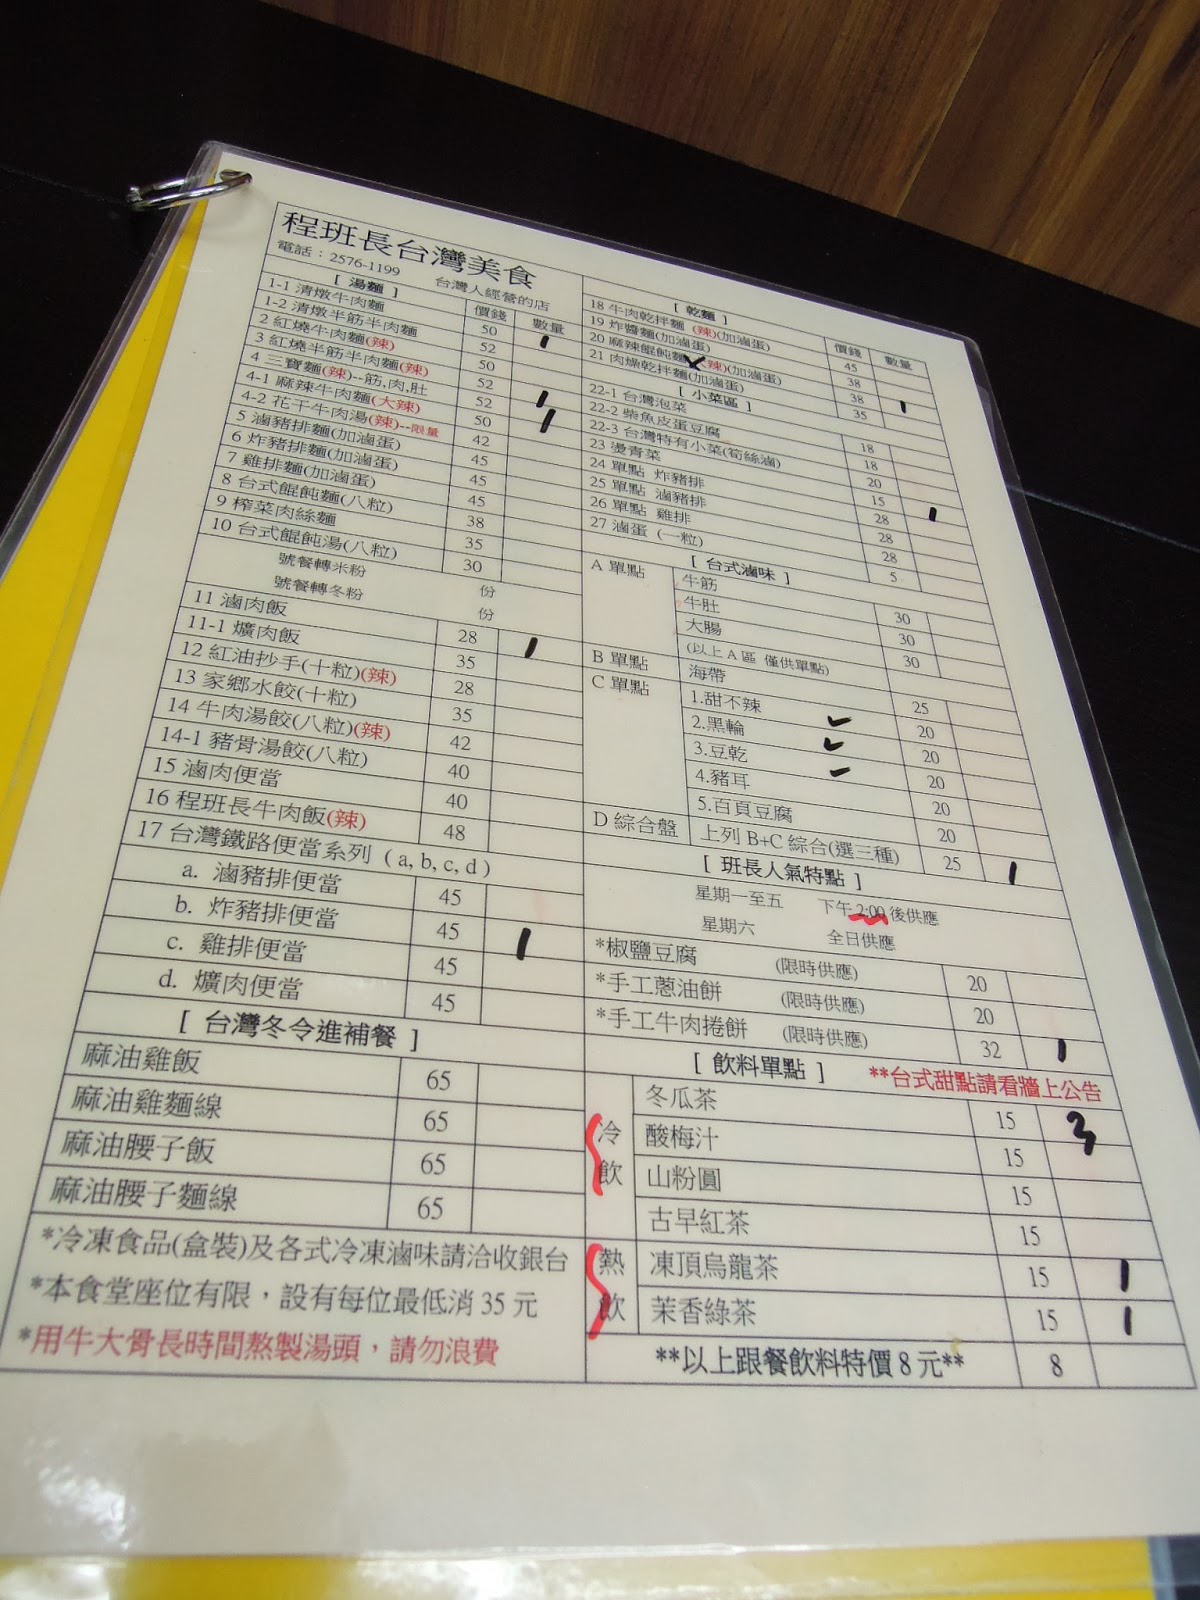 程班長台灣美食
電話：2576-1199 台灣人經營的店
[ 湯麵 ] 價錢 數量
1-1 清燉牛肉麵 50
1-2 清燉半筋半肉麵 52 1
2 紅燒牛肉麵(辣) 50
3 紅燒半筋半肉麵(辣) 52
4 三寶麵(辣)--筋,肉,肚 52 1
4-1 麻辣牛肉麵(大辣) 50 1
4-2 花干牛肉湯(辣)--限量 42
5 滷豬排麵(加滷蛋) 45
6 炸豬排麵(加滷蛋) 45
7 雞排麵(加滷蛋) 45
8 台式餛飩麵(八粒) 38
9 榨菜肉絲麵 35
10 台式餛飩湯(八粒) 30
號餐轉米粉 份
號餐轉冬粉 份
11 滷肉飯 28 1
11-1 爌肉飯 35
12 紅油抄手(十粒)(辣) 28
13 家鄉水餃(十粒) 35
14 牛肉湯餃(八粒)(辣) 42
14-1 豬骨湯餃(八粒) 40
15 滷肉便當 40
16 程班長牛肉飯(辣) 48
17 台灣鐵路便當系列 ( a, b, c, d )
a. 滷豬排便當 45
b. 炸豬排便當 45 1
c. 雞排便當 45
d. 爌肉便當 45
[ 台灣冬令進補餐 ]
麻油雞飯 65
麻油雞麵線 65
麻油腰子飯 65
麻油腰子麵線 65
*冷凍食品(盒裝)及各式冷凍滷味請洽收銀台
*本食堂座位有限，設有每位最低消 35 元
*用牛大骨長時間熬製湯頭，請勿浪費
[ 乾麵 ] 價錢 數量
18 牛肉乾拌麵 (辣)(加滷蛋) 45
19 炸醬麵(加滷蛋) 38
20 麻辣餛飩麵 辣)(加滷蛋) 38 1
21 肉燥乾拌麵(加滷蛋) 35
[ 小菜區 ]
22-1 台灣泡菜 18
22-2 柴魚皮蛋豆腐 18
22-3 台灣特有小菜(筍絲滷) 20
23 燙青菜 15
24 單點 炸豬排 28 1
25 單點 滷豬排 28
26 單點 雞排 28
27 滷蛋 (一粒) 5
[ 台式滷味 ]
A 單點 牛筋 30
牛肚 30
大腸 30
(以上 A 區 僅供單點)
B 單點 海帶 25
C 單點 1.甜不辣 20
2.黑輪 20
3.豆乾 20
4.豬耳 20
5.百頁豆腐 20
D 綜合盤 上列 B+C 綜合(選三種) 25 1
[ 班長人氣特點 ]
星期一至五 下午 2:00 後供應
星期六 全日供應
*椒鹽豆腐 (限時供應) 20
*手工蔥油餅 (限時供應) 20
*手工牛肉捲餅 (限時供應) 32 1
[ 飲料單點 ] **台式甜點請看牆上公告
冷飲
冬瓜茶 15 3
酸梅汁 15
山粉圓 15
古早紅茶 15
熱飲
凍頂烏龍茶 15 1
茉香綠茶 15 1
**以上跟餐飲料特價 8 元** 8